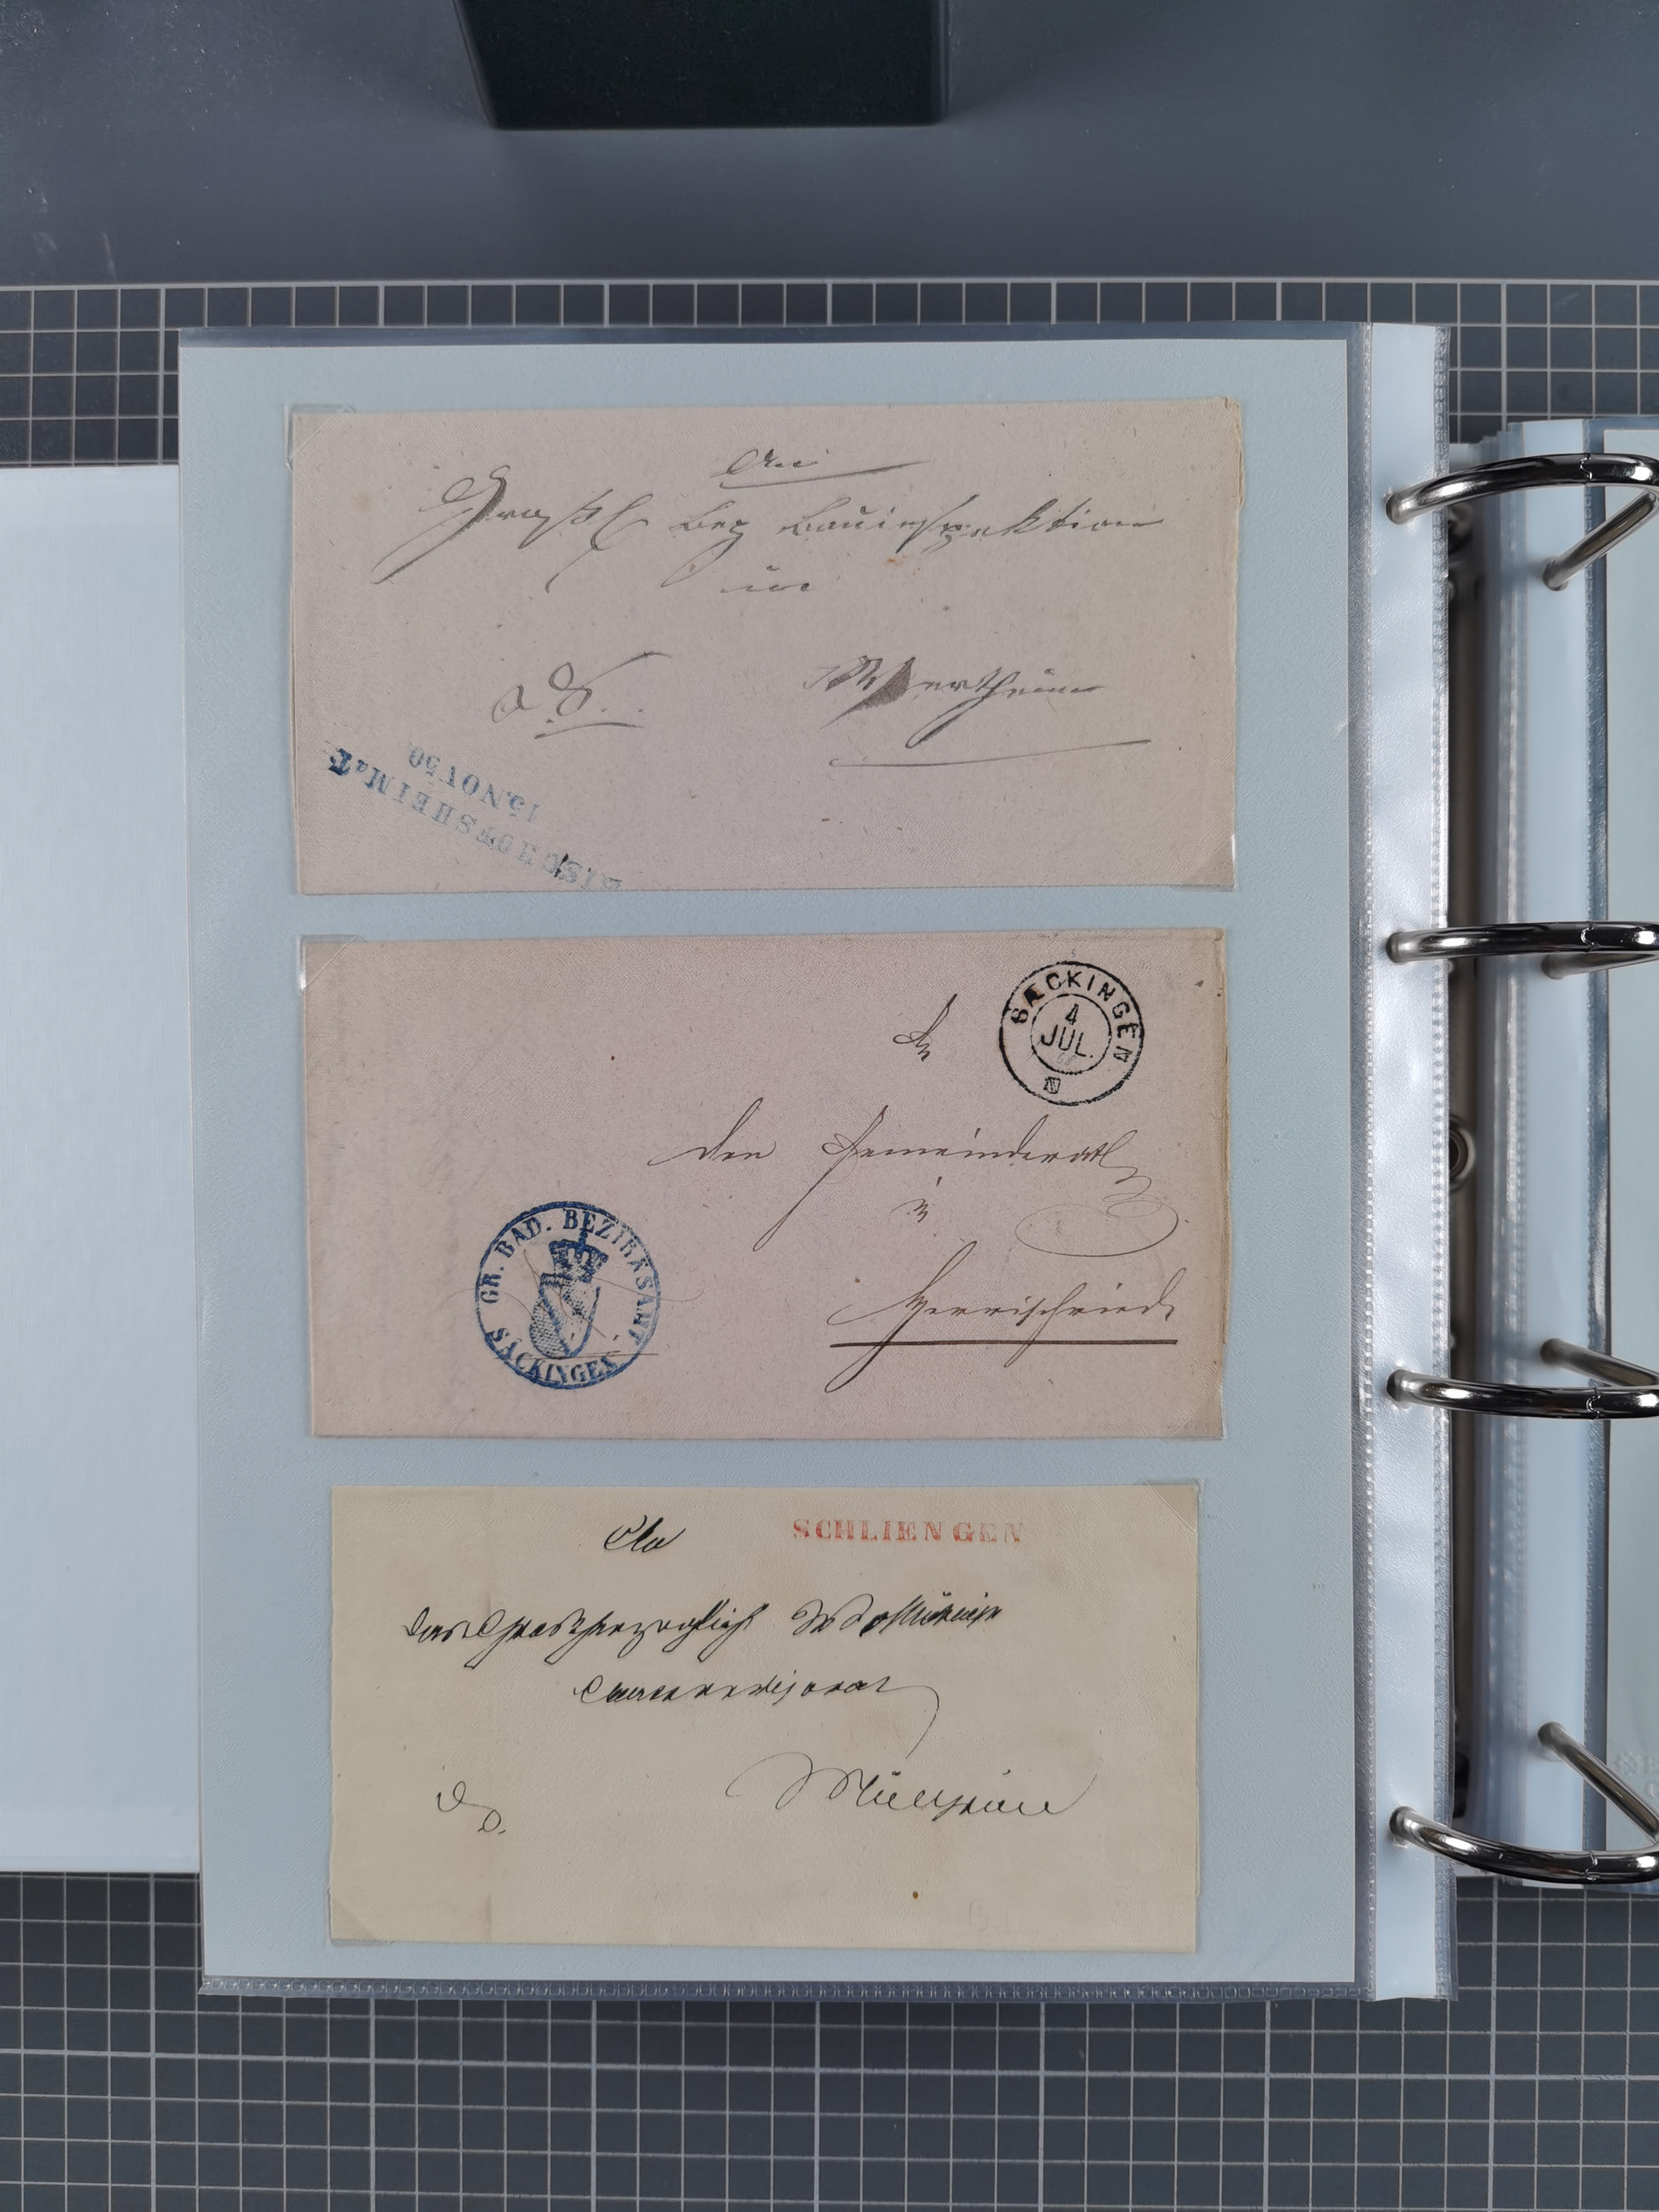 An
Großh Bez Bauinspektion
in
D. S.
Wertheim
BISCHOFSHEIM a T
15.NOV 50
SÆCKINGEN
4
JUL.
An
den Gemeinderath
in
Herrischried
GR. BAD. BEZIRKSAMT
SÄCKINGEN
An
SCHLIENGEN
das Großherzogliche
Müllheim